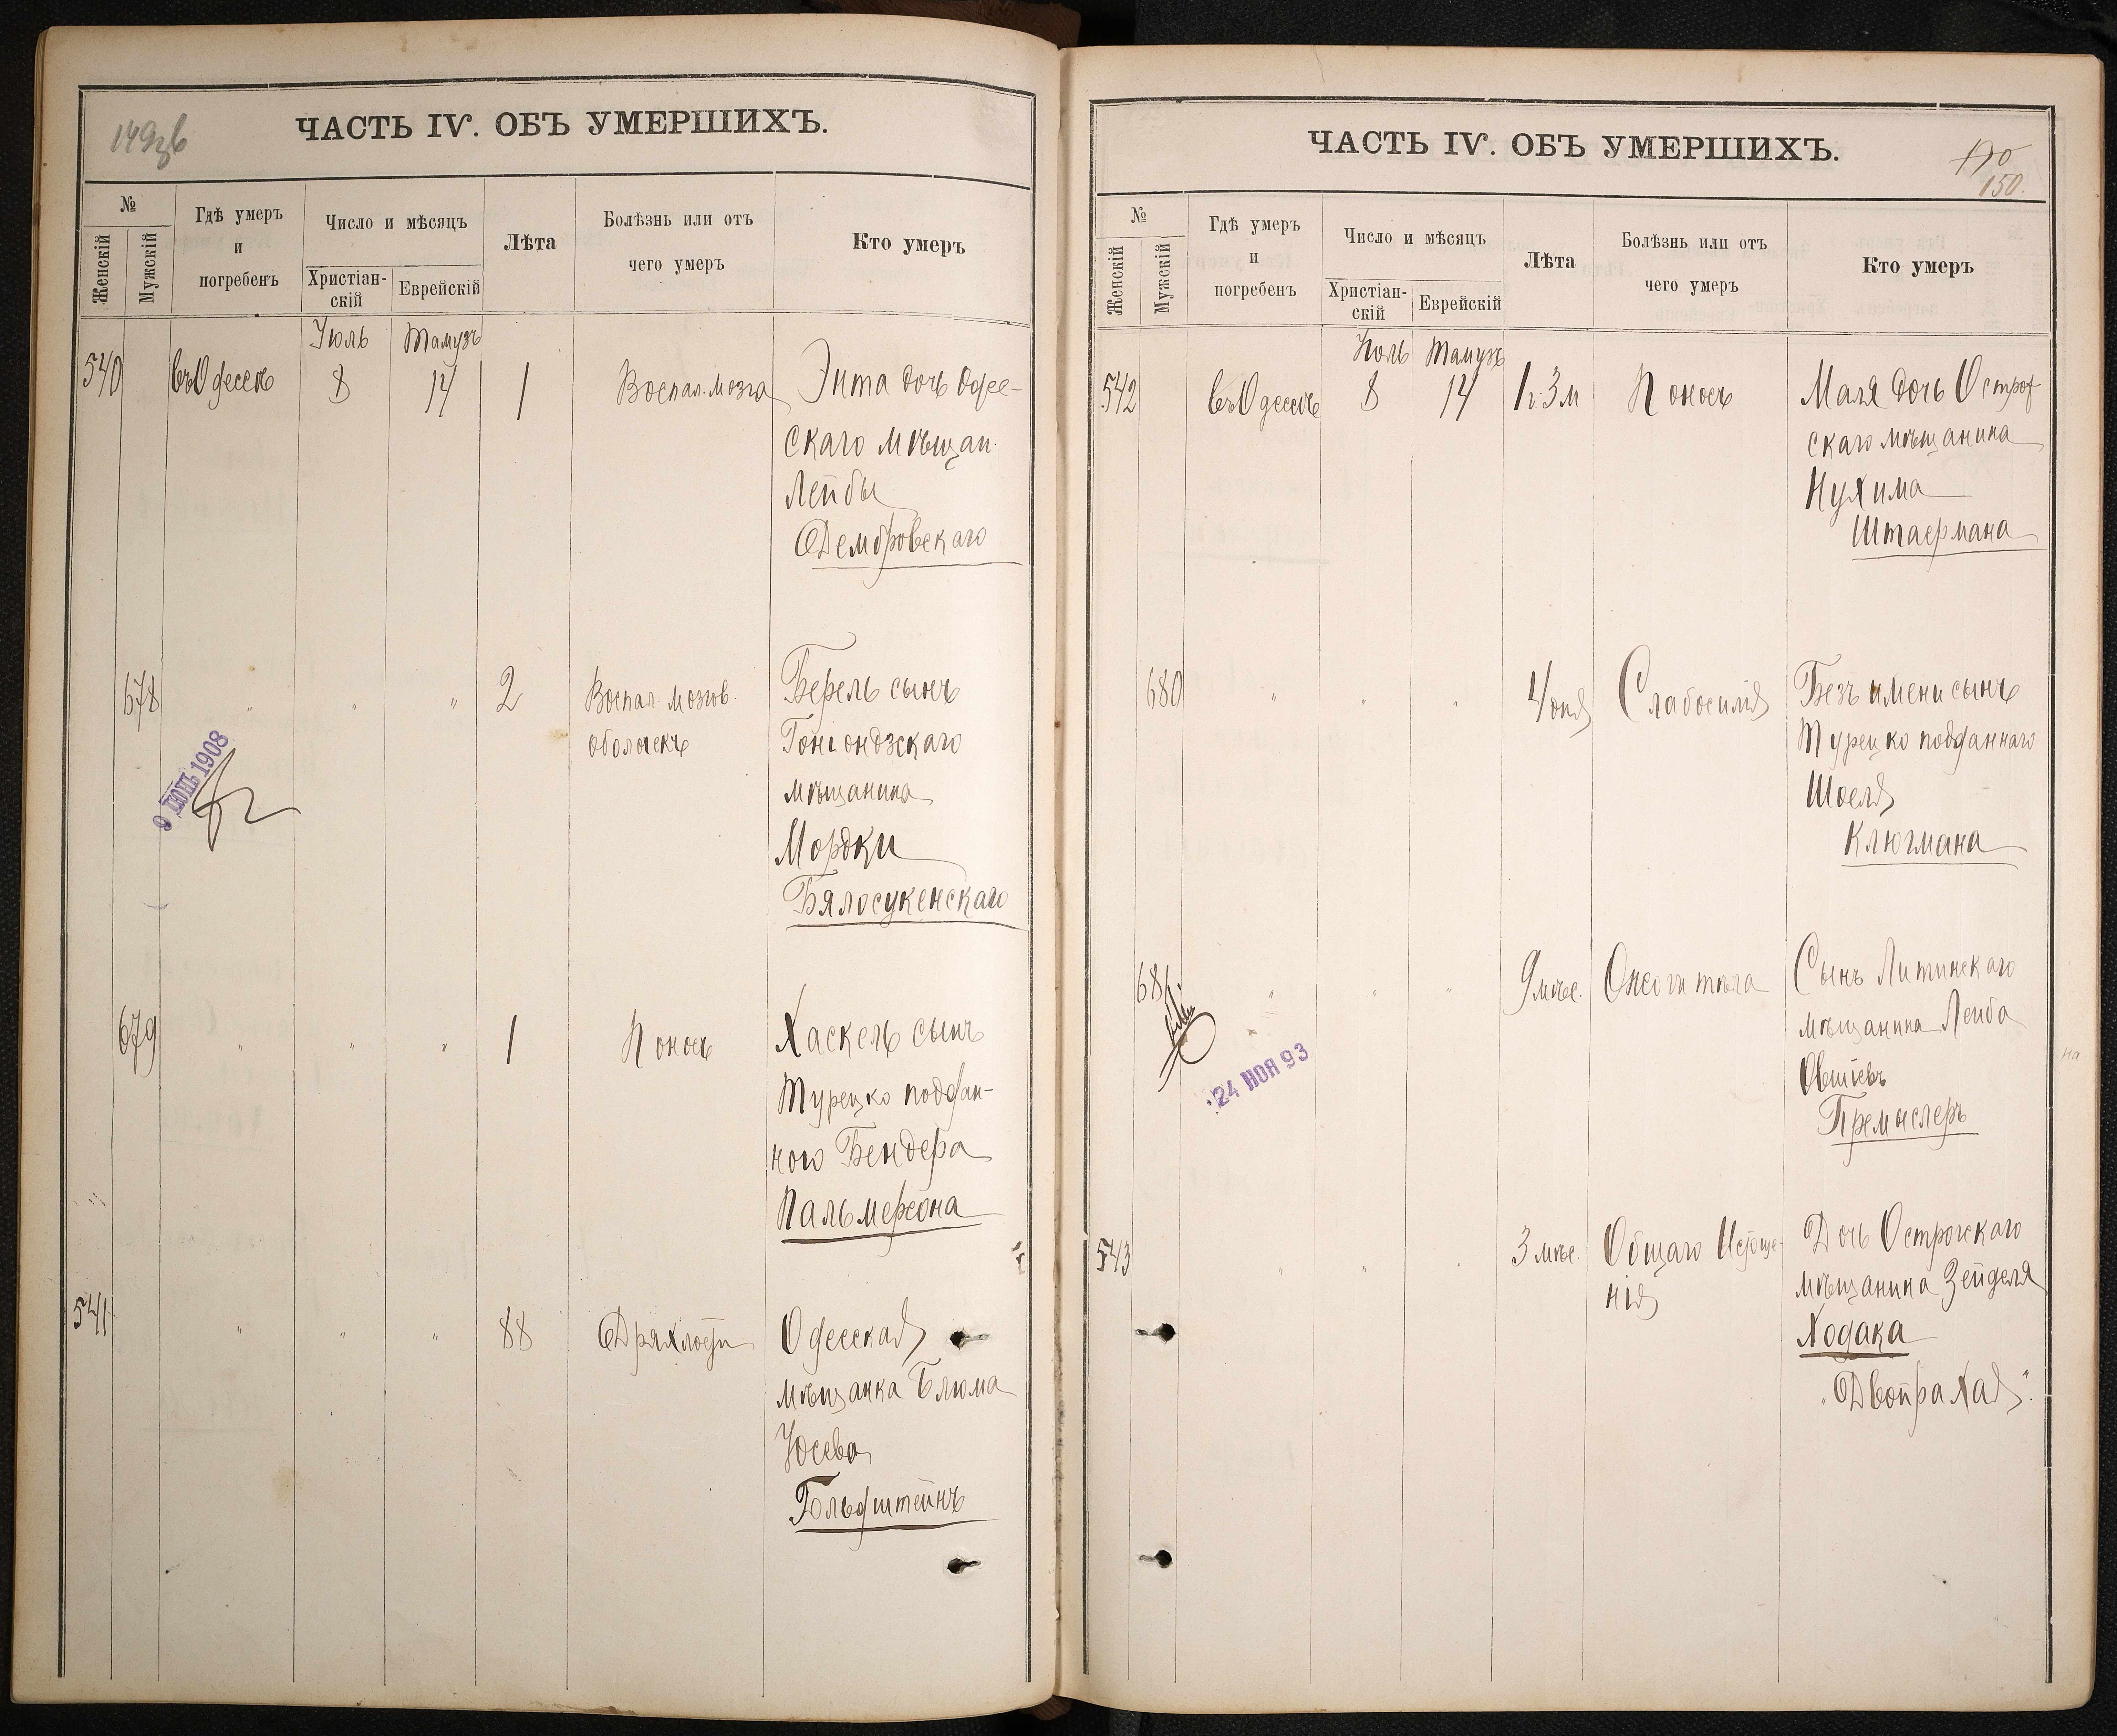 149об
ЧАСТЬ IV. ОБЪ УМЕРШИХЪ.
№
Женскій
Мужскій
Гдѣ умеръ
и
погребенъ
Число и мѣсяцъ
Христіан-
скій
Еврейскій
Лѣта
Болѣзнь или отъ
чего умеръ
Кто умеръ
Іюль Тамузъ
540 въ Одессѣ 8 14 1 Воспал. мозга Энта дочь Одес-
скаго мѣщан.
Лейбы
Дембровскаго
678 " " " 2 Воспал. мозгов. Берель сынъ
оболочекъ Гоніондзскаго
мѣщанина
Мордки
Бялосукенскаго
9 ІЮН 1908
679 " " " 1 Поносъ Хаскель сынъ
Турецко поддан-
ного Бендера
Пальмерсона
541 " " " 88 Дряхлости Одесская
мѣщанка Блюма
Іосева
Гольдштейнъ
150.
ЧАСТЬ IV. ОБЪ УМЕРШИХЪ.
№
Женскій
Мужскій
Гдѣ умеръ
и
погребенъ
Число и мѣсяцъ
Христіан-
скій
Еврейскій
Лѣта
Болѣзнь или отъ
чего умеръ
Кто умеръ
Іюль Тамузъ
542 въ Одессѣ 8 14 1 г. 3 м Поносъ Маля дочь Острог
скаго мѣщанина
Нухима
Штаермана
680 " " " 4/дня Слабосилія Безъ имени сынъ
Турецко подданнаго
Шоеля
Клюгмана
681 " " " 9 мѣс. Сынъ Литинскаго
мѣщанина Лейба
Овшіевъ
Премыслеръ
24 НОЯ 93
543 " " " 3 мѣс. Общаго Истоще-
нія
Дочь Острогскаго
мѣщанина Зейделя
Ходака
"Двойра Хая".
на